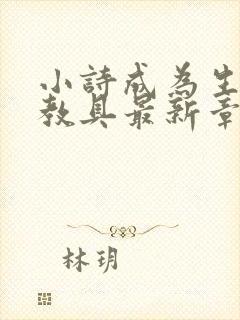 小詩成為生
教具最新章
林玥